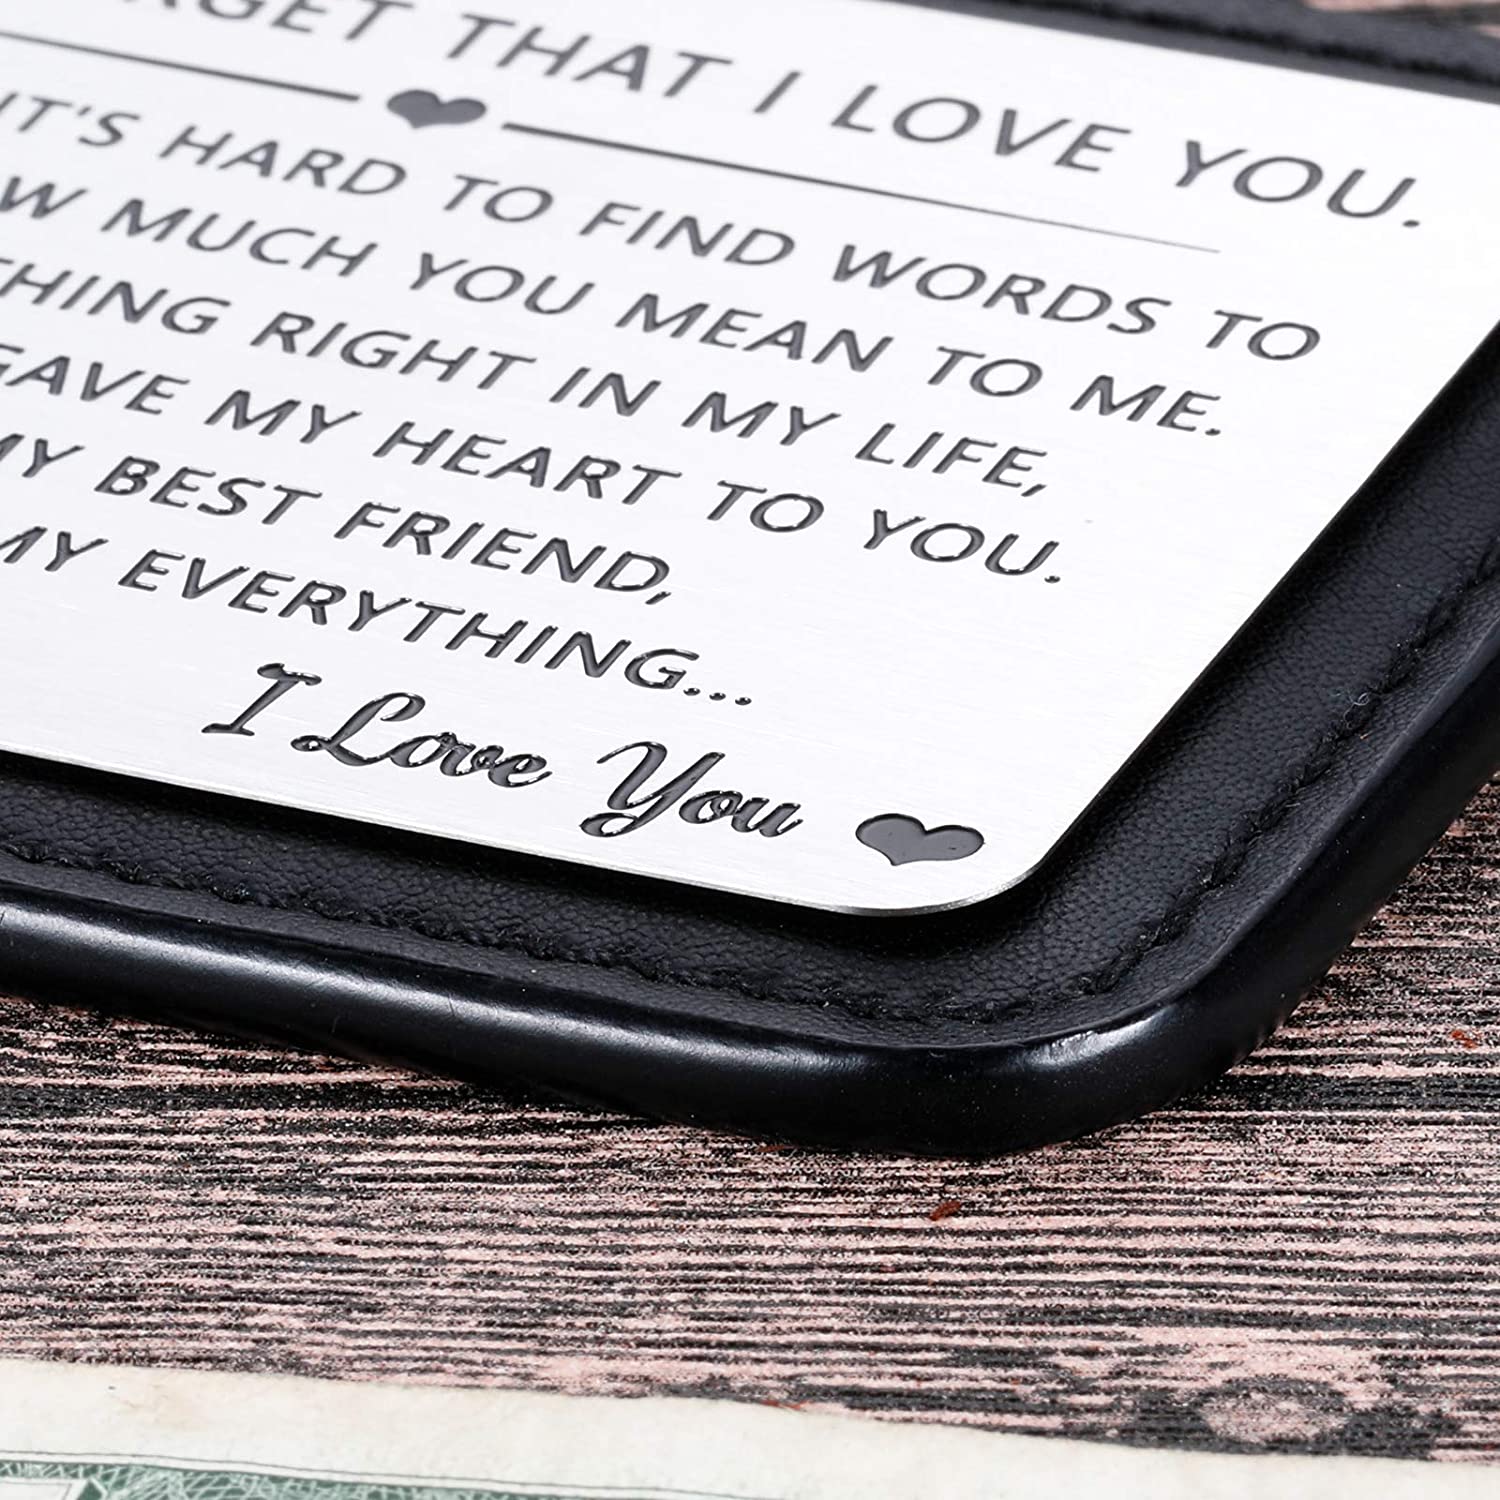 THAT I LOVE YOU.
IT'S HARD TO FIND WORDS TO
MUCH YOU MEAN TO ME.
RIGHT IN MY LIFE,
GAVE MY HEART TO YOU.
MY BEST FRIEND,
MY EVERYTHING...
I Love You